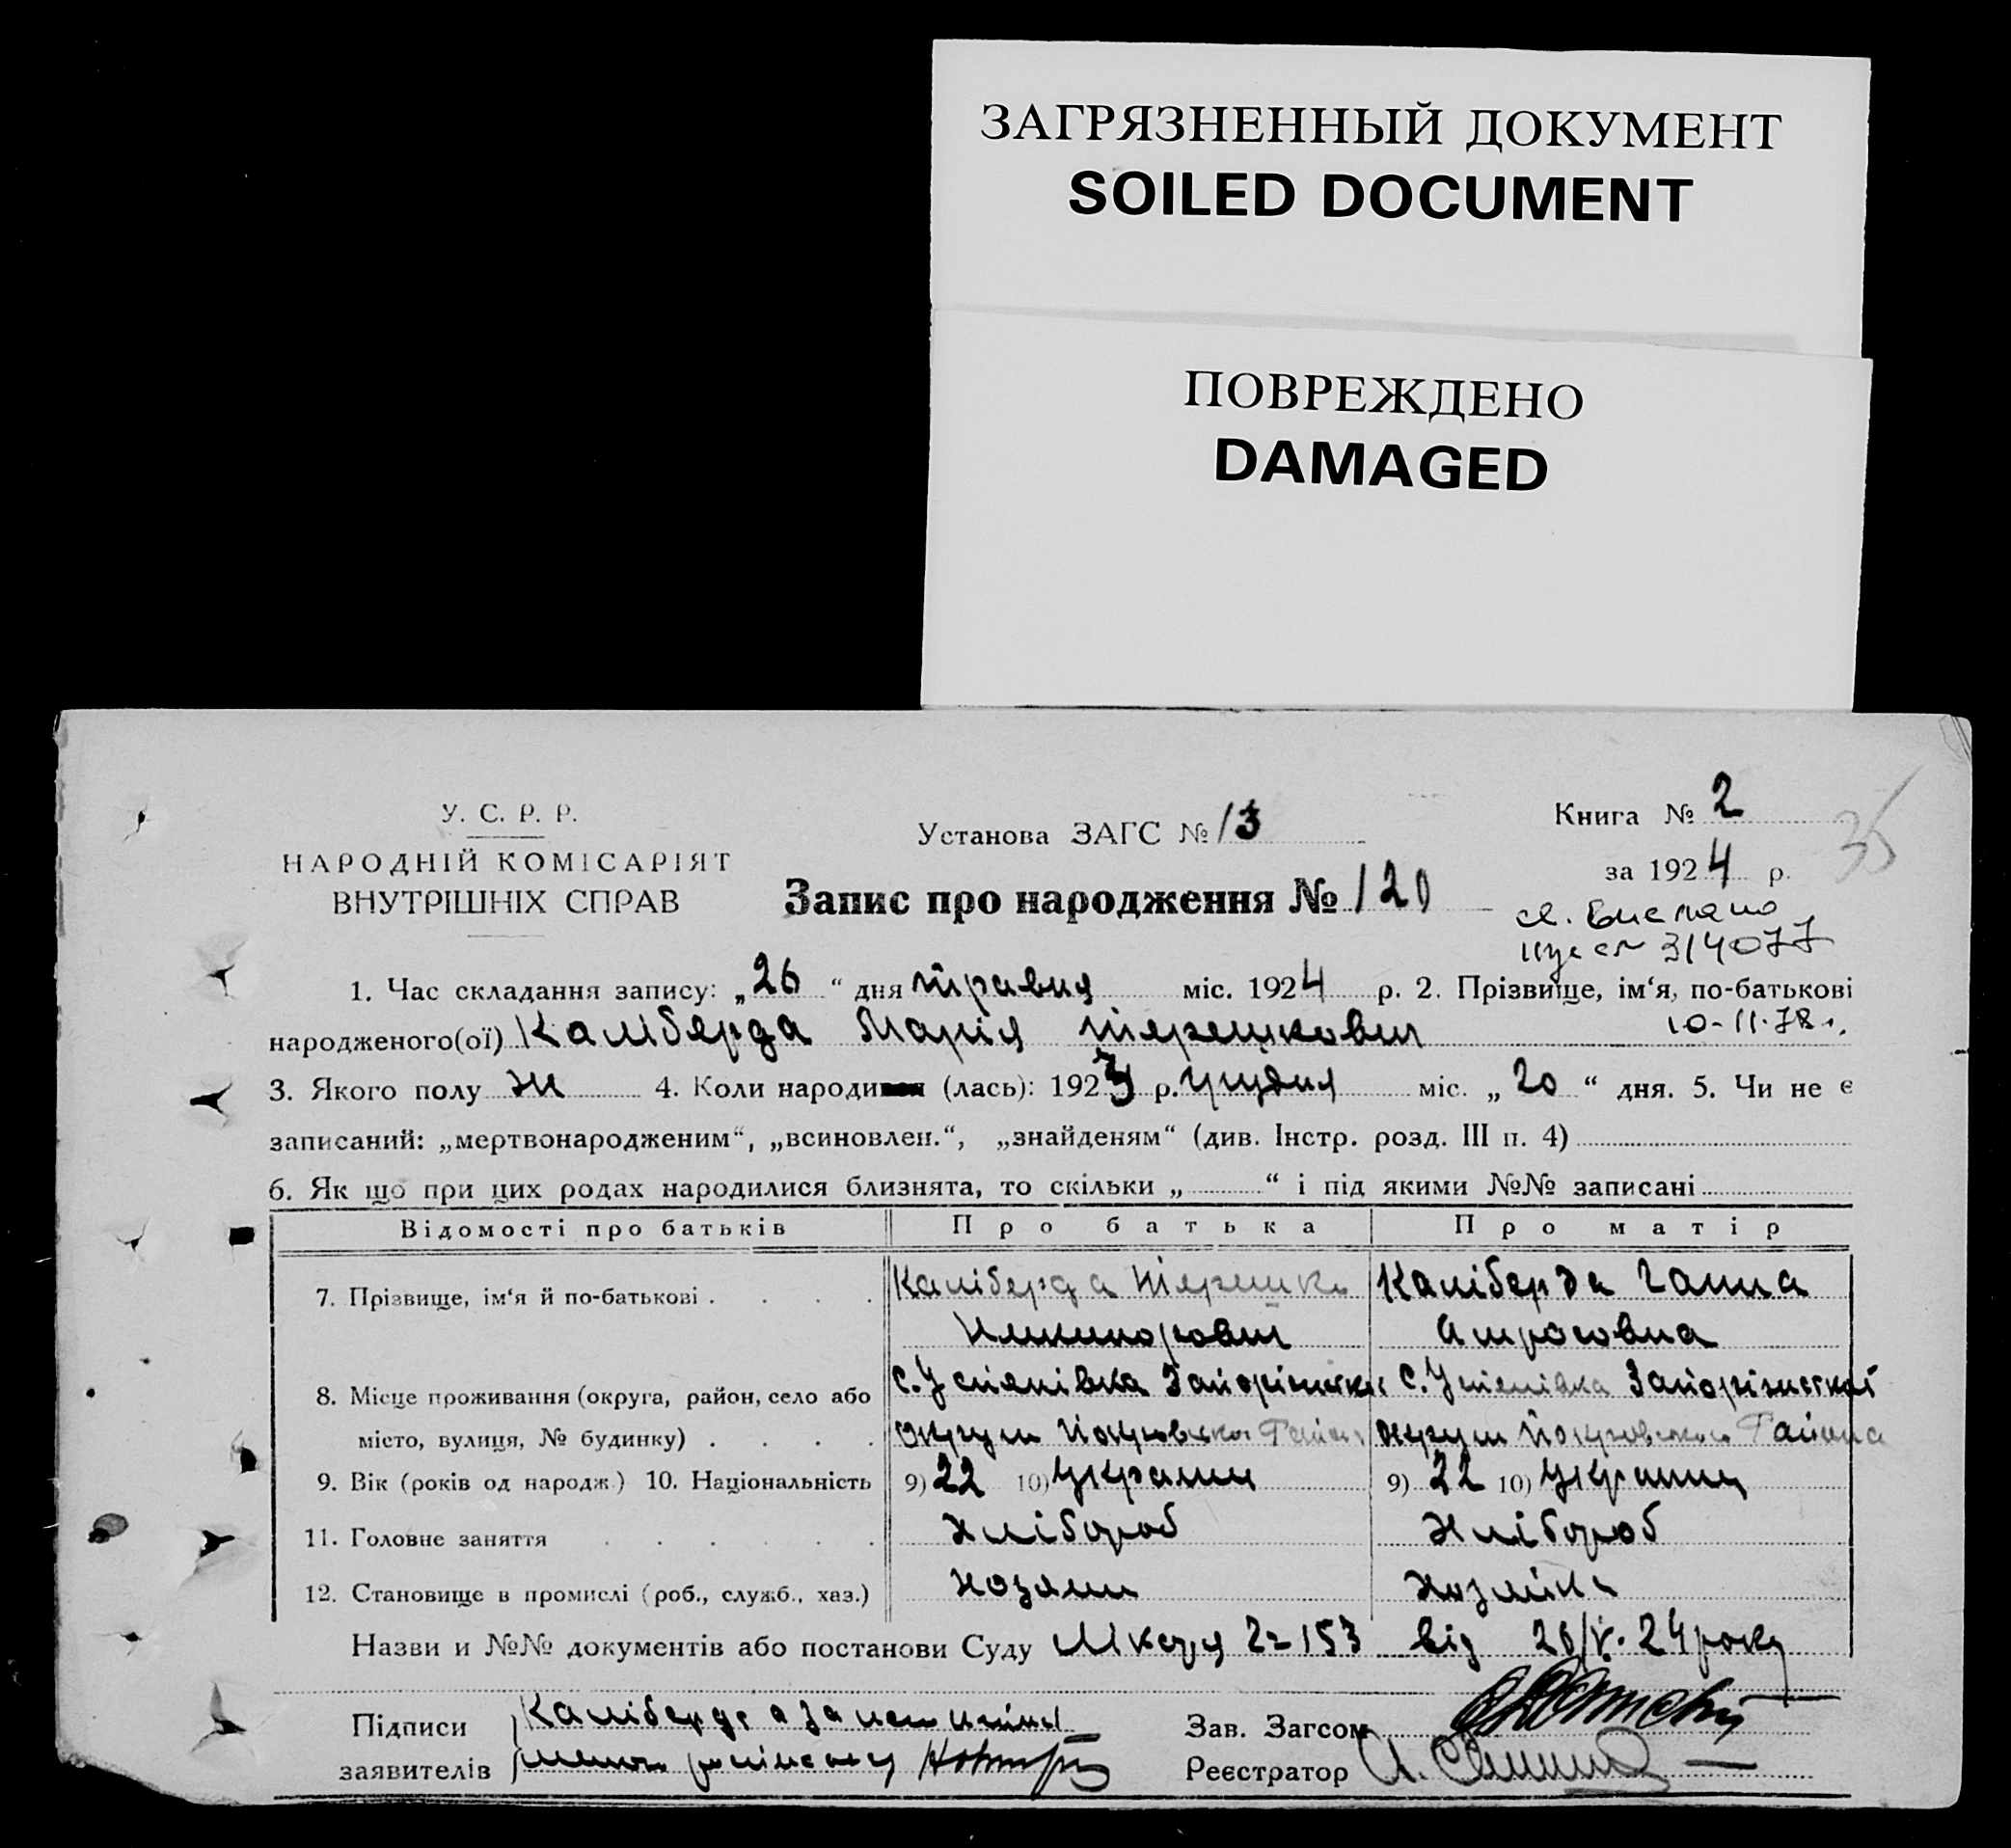 ЗАГРЯЗНЕННЫЙ ДОКУМЕНТ
SOILED DOCUMENT
ПОВРЕЖДЕНО
DAMAGED
У. С. Р. Р.
НАРОДНІЙ КОМІСАРІЯТ
ВНУТРІШНІХ СПРАВ
Установа ЗАГС № 13
Запис про народження № 120
Книга № 2
за 1924 р.
35
314077
1. Час складання запису: „26“ дня травня міс. 1924 р. 2. Прізвище, ім‘я, по-батькові
10-11-78 г.
народженого(ої) Каліберда Марія Терешковн
3. Якого полу ж 4. Коли народився (лась): 1923 р. грудня міс. „20“ дня. 5. Чи не є
записаний: „мертвонародженим“, „всиновлен.“, „знайденям“ (див. Інстр. розд. III п. 4)
6. Як що при цих родах народилися близнята, то скільки „ “ і під якими №№ записані
Відомості про батьків Про батька Про матір
7. Прізвище, ім‘я й по-батькові . . . . Каліберда Терешко Каліберда Ганна
8. Місце проживання (округа, район, село або с. Успенівка Запоріжської с. Успенівка Запоріжської
місто, вулиця, № будинку) . . . . округи Покровського Району округи Покровського Района
9. Вік (років од народж.) 10. Національність 9) 22 10) Українц 9) 22 10) Українц
11. Головне заняття . . . . . . Хлібороб Хлібороб
12. Становище в промислі (роб., служб., хаз.) Хозяин Хозяйка
Назви и №№ документів або постанови Суду 153 від 20/V-24 року
Підписи Каліберда
Зав. Загсом
заявителів
Реєстратор